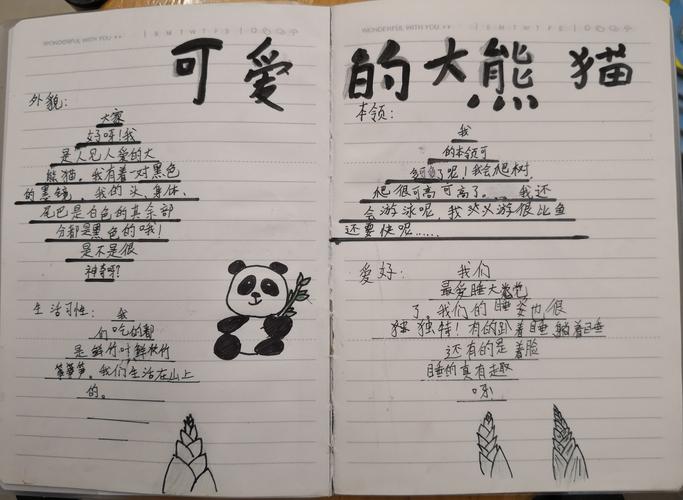 WONDERFUL WITH YOU
WONDERFUL WITH YOU
可爱的大熊猫
外貌:
大家
好呀!我
是人见人爱的大
熊猫。我有着一对黑色
的墨镜,我的头、身体、
尾巴是白色的其余部
分都是黑色的哦!
是不是很
神奇呀?
生活习性:我
们吃的都
是鲜竹叶鲜秋竹
笋,我们生活在山上
的。
本领:
我
的本领可
多了呢!我会爬树,
爬很可高可高了。我还
会游泳呢,我游很比鱼
还要快呢……
爱好:我们
最爱睡大觉也
了,我们的睡姿也很
独特!有的趴着睡躺着睡
还有的是着脸
睡的真有趣
呀